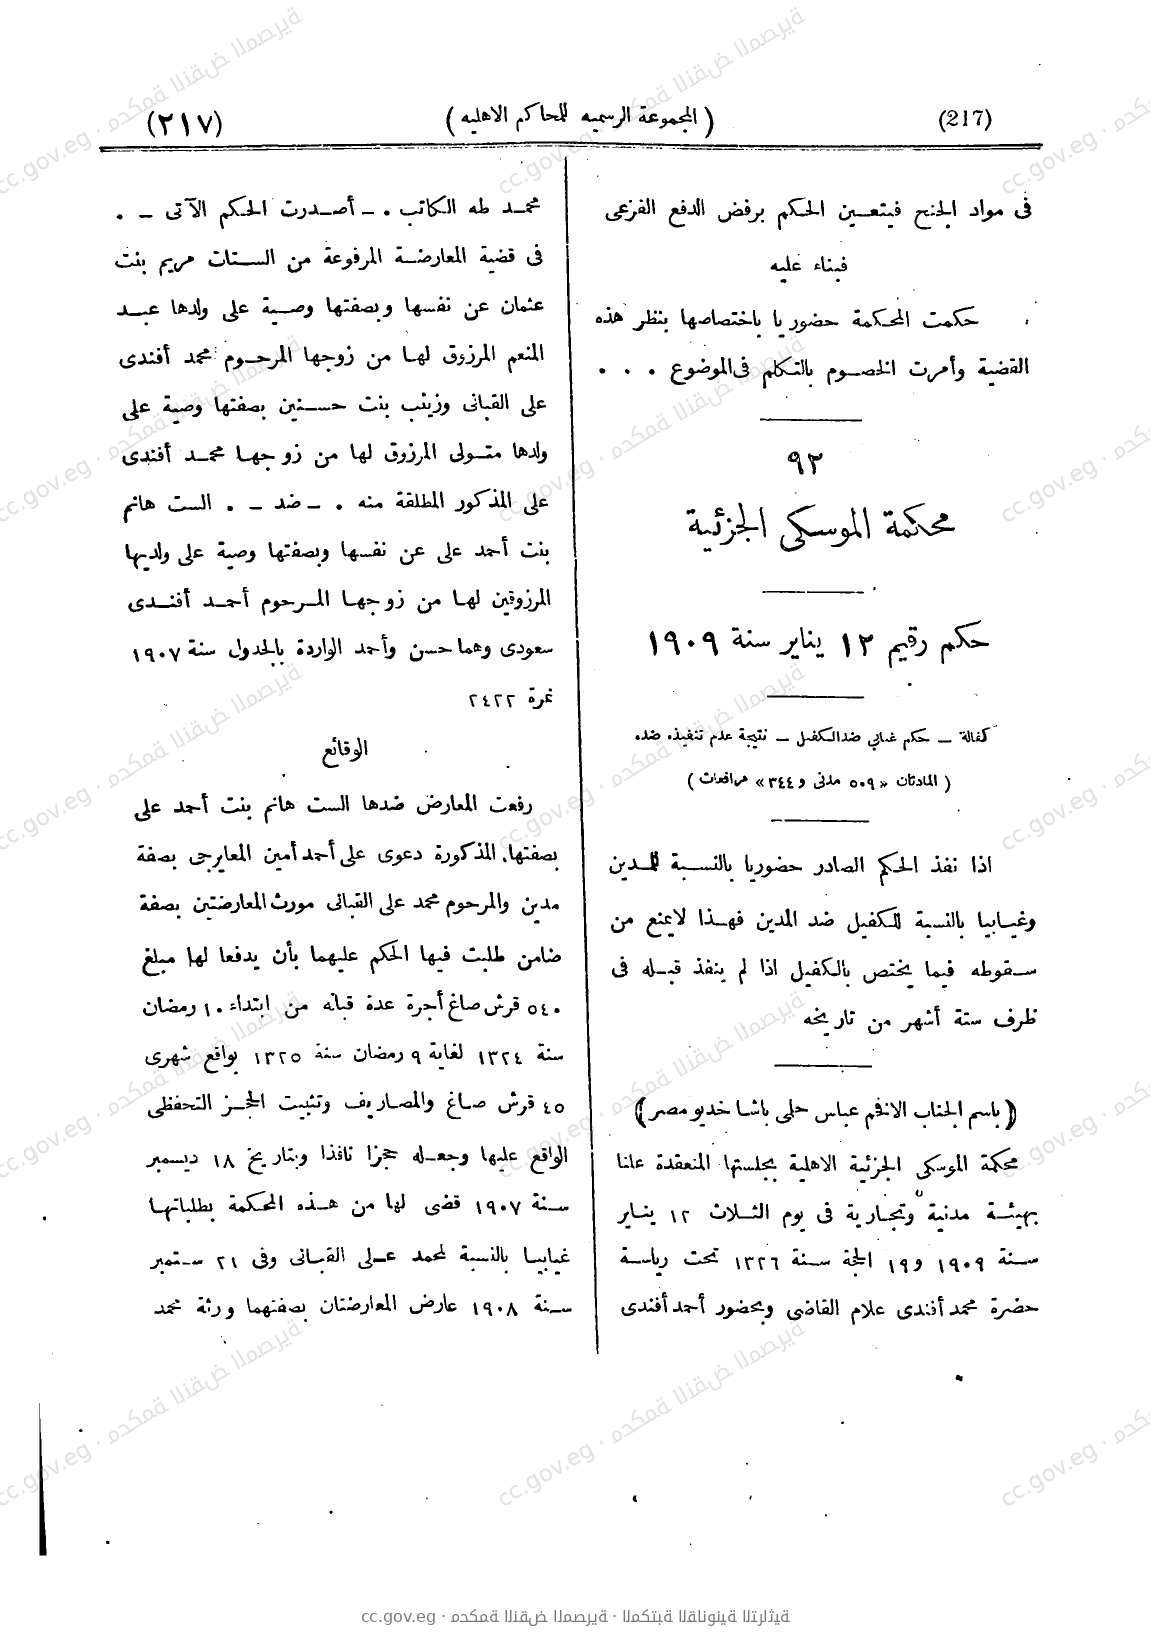 (٢١٧)
( المجموعة الرسميه للمحاكم الاهليه )
(217)
فى مواد الجنح فيتعين الحكم برفض الدفع الفرعى
فبناء عليه
حكمت المحكمة حضوريا باختصاصها بنظر هذه
القضية وأمرت الخصوم بالتكلم فى الموضوع . . .
٩٢
محكمة الموسكى الجزئية
حكم رقيم ١٢ يناير سنة ١٩٠٩
كفالة ــ حكم غيابي ضد الكفيل ــ نتيجة عدم تنفيذه ضده
( المادتان « ٥٠٩ مدنى و ٣٤٤» مرافعات )
اذا نفذ الحكم الصادر حضوريا بالنسبة للمدين
وغيابيا بالنسبة للكفيل ضد المدين فهذا لا يمنع من
سقوطه فيما يختص بالكفيل اذا لم ينفذ قبله فى
ظرف ستة أشهر من تاريخه
( باسم الجناب الافخم عباس حلمى باشا خديو مصر )
محكمة الموسكى الجزئية الاهلية بجلستها المنعقدة علنا
بهيئة مدنية وتجارية فى يوم الثلاث ١٢ يناير
سنة ١٩٠٩ و١٩ الحجة سنة ١٣٢٦ تحت رياسة
حضرة محمد أفندى علام القاضى وبحضور أحمد أفندى
محمد طه الكاتب . ــ أصدرت الحكم الآتى ــ .
فى قضية المعارضة المرفوعة من الستات مريم بنت
عثمان عن نفسها وبصفتها وصية على ولدها عبد
المنعم المرزوق لها من زوجها المرحوم محمد أفندى
على القبانى وزينب بنت حسنين بصفتها وصية على
ولدها متولى المرزوق لها من زوجها محمد أفندى
على المذكور المطلقة منه . ــ ضد ــ . الست هانم
بنت أحمد على عن نفسها وبصفتها وصية على ولديها
المرزوقين لها من زوجها المرحوم أحمد أفندى
سعودى وهما حسن وأحمد الواردة بالجدول سنة ١٩٠٧
نمرة ٢٤٢٢
الوقائع
رفعت المعارض ضدها الست هانم بنت أحمد على
بصفتها المذكورة دعوى على أحمد أمين المعايرجى بصفة
مدين والمرحوم محمد على القبانى مورث المعارضتين بصفة
ضامن طلبت فيها الحكم عليهما بأن يدفعا لها مبلغ
٥٤٠ قرش صاغ أجرة عدة قبانه من ابتداء ١٠ رمضان
سنة ١٣٢٤ لغاية ٩ رمضان سنة ١٣٢٥ بواقع شهرى
٤٥ قرش صاغ والمصاريف وتثبيت الحجز التحفظى
الواقع عليها وجعله حجزا نافذا وبتاريخ ١٨ ديسمبر
سنة ١٩٠٧ قضى لها من هذه المحكمة بطلباتها
غيابيا بالنسبة لمحمد على القبانى وفى ٢١ ستمبر
سنة ١٩٠٨ عارض المعارضتان بصفتهما ورثة محمد
cc.gov.eg · محكمة النقض المصرية · المكتبة القانونية التراثية